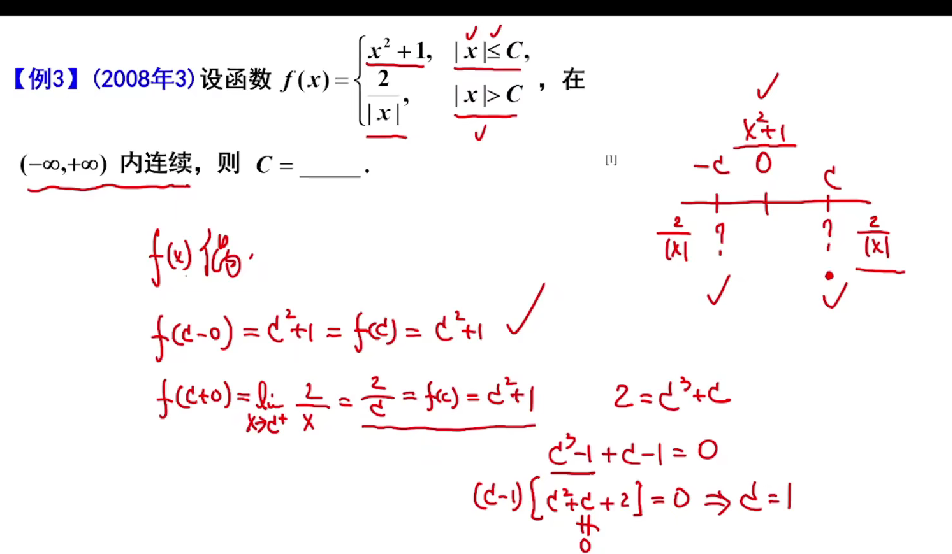 【例3】(2008年3) 设函数 f(x) = { x² + 1, |x| ≤ C, 2/|x|, |x| > C , 在
(−∞,+∞) 内连续, 则 C = _____ .
[1]
x²+1
-C 0 C
2/|x| ? ? 2/|x|
f(x) 偶.
f(C-0) = C²+1 = f(C) = C²+1
f(C+0) = lim x→C⁺ 2/x = 2/C = f(C) = C²+1
2 = C³+C
C³-1+C-1=0
(C-1)[C²+C+2]=0 ⇒ C=1
0